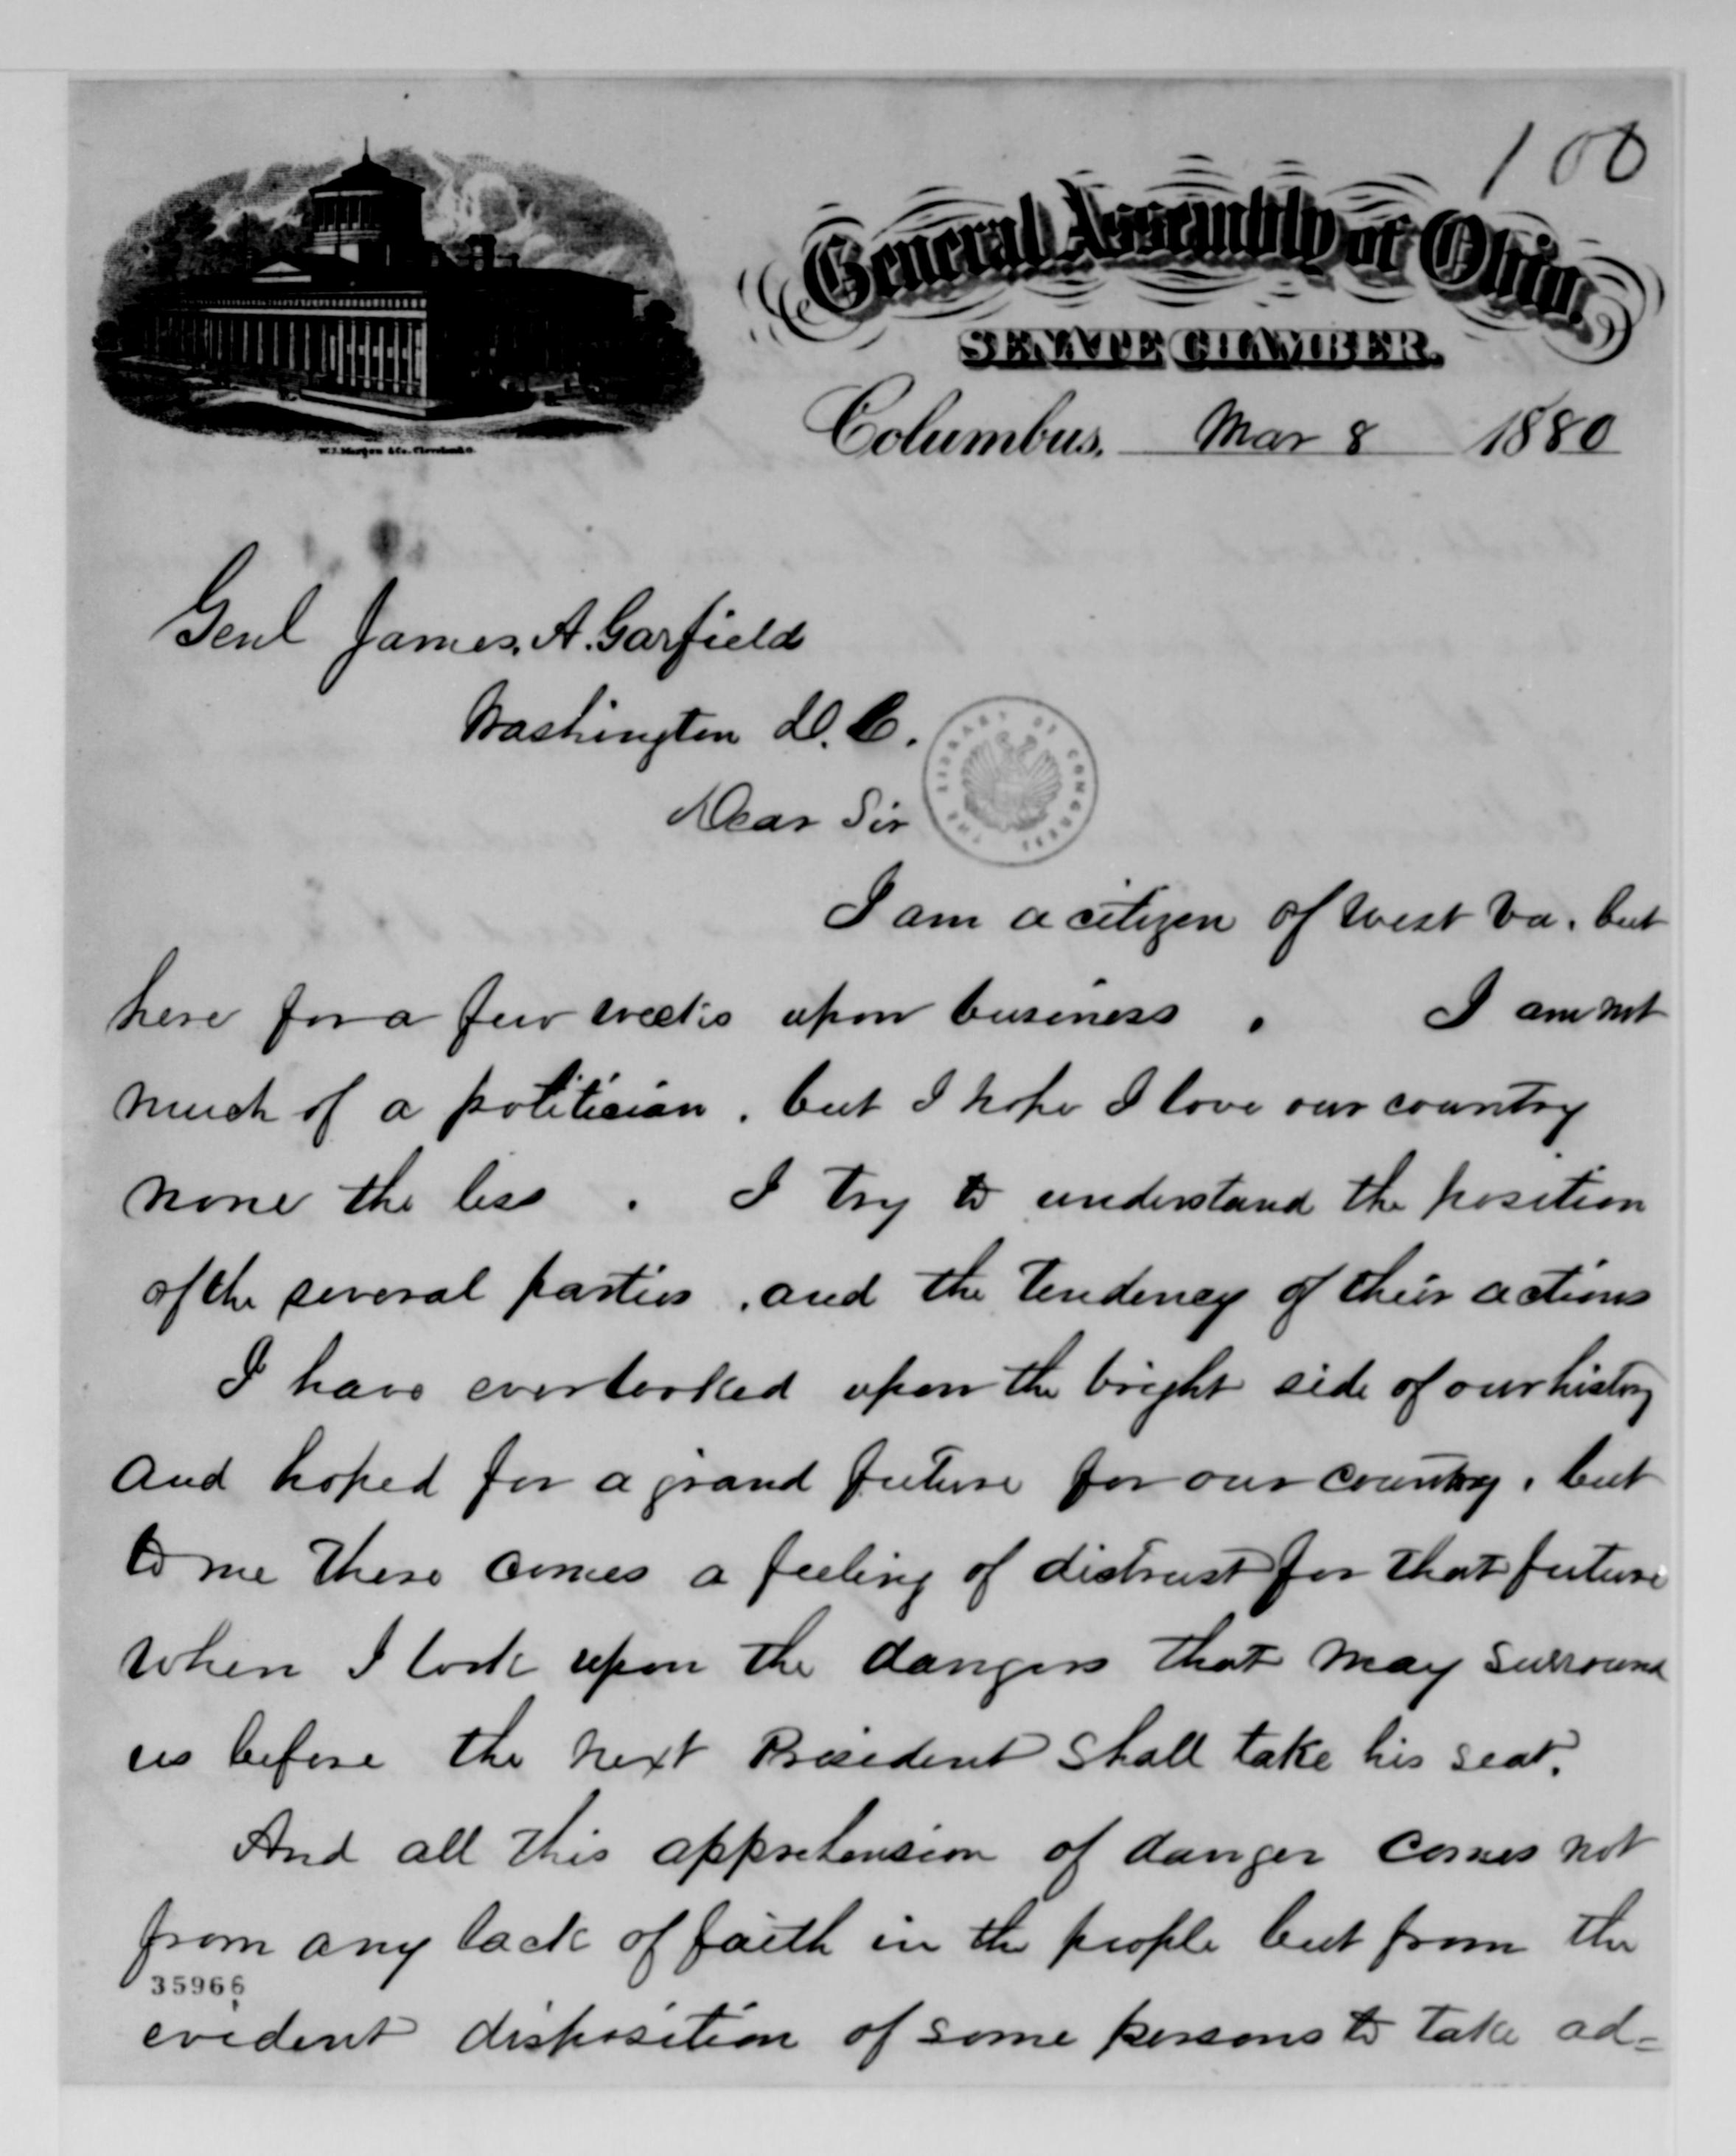 100
General Assembly of Ohio,
SENATE CHAMBER.
W.J. Morgan & Co. Cleveland O.
Columbus, Mar 8 1880
Genl James. A. Garfield
Washington D. C.
Dear Sir
THE LIBRARY OF CONGRESS
I am a citizen of West Va. but
here for a few weeks upon business . I am not
much of a politician . but I hope I love our country
none the less . I try to understand the position
of the several parties . and the tendency of their actions
I have ever looked upon the bright side of our history
and hoped for a grand future for our country . but
to me there comes a feeling of distrust for that future
when I look upon the dangers that may surround
us before the next President shall take his seat.
And all this apprehension of danger comes not
from any lack of faith in the people but from the
35966
evident disposition of some persons to take ad=